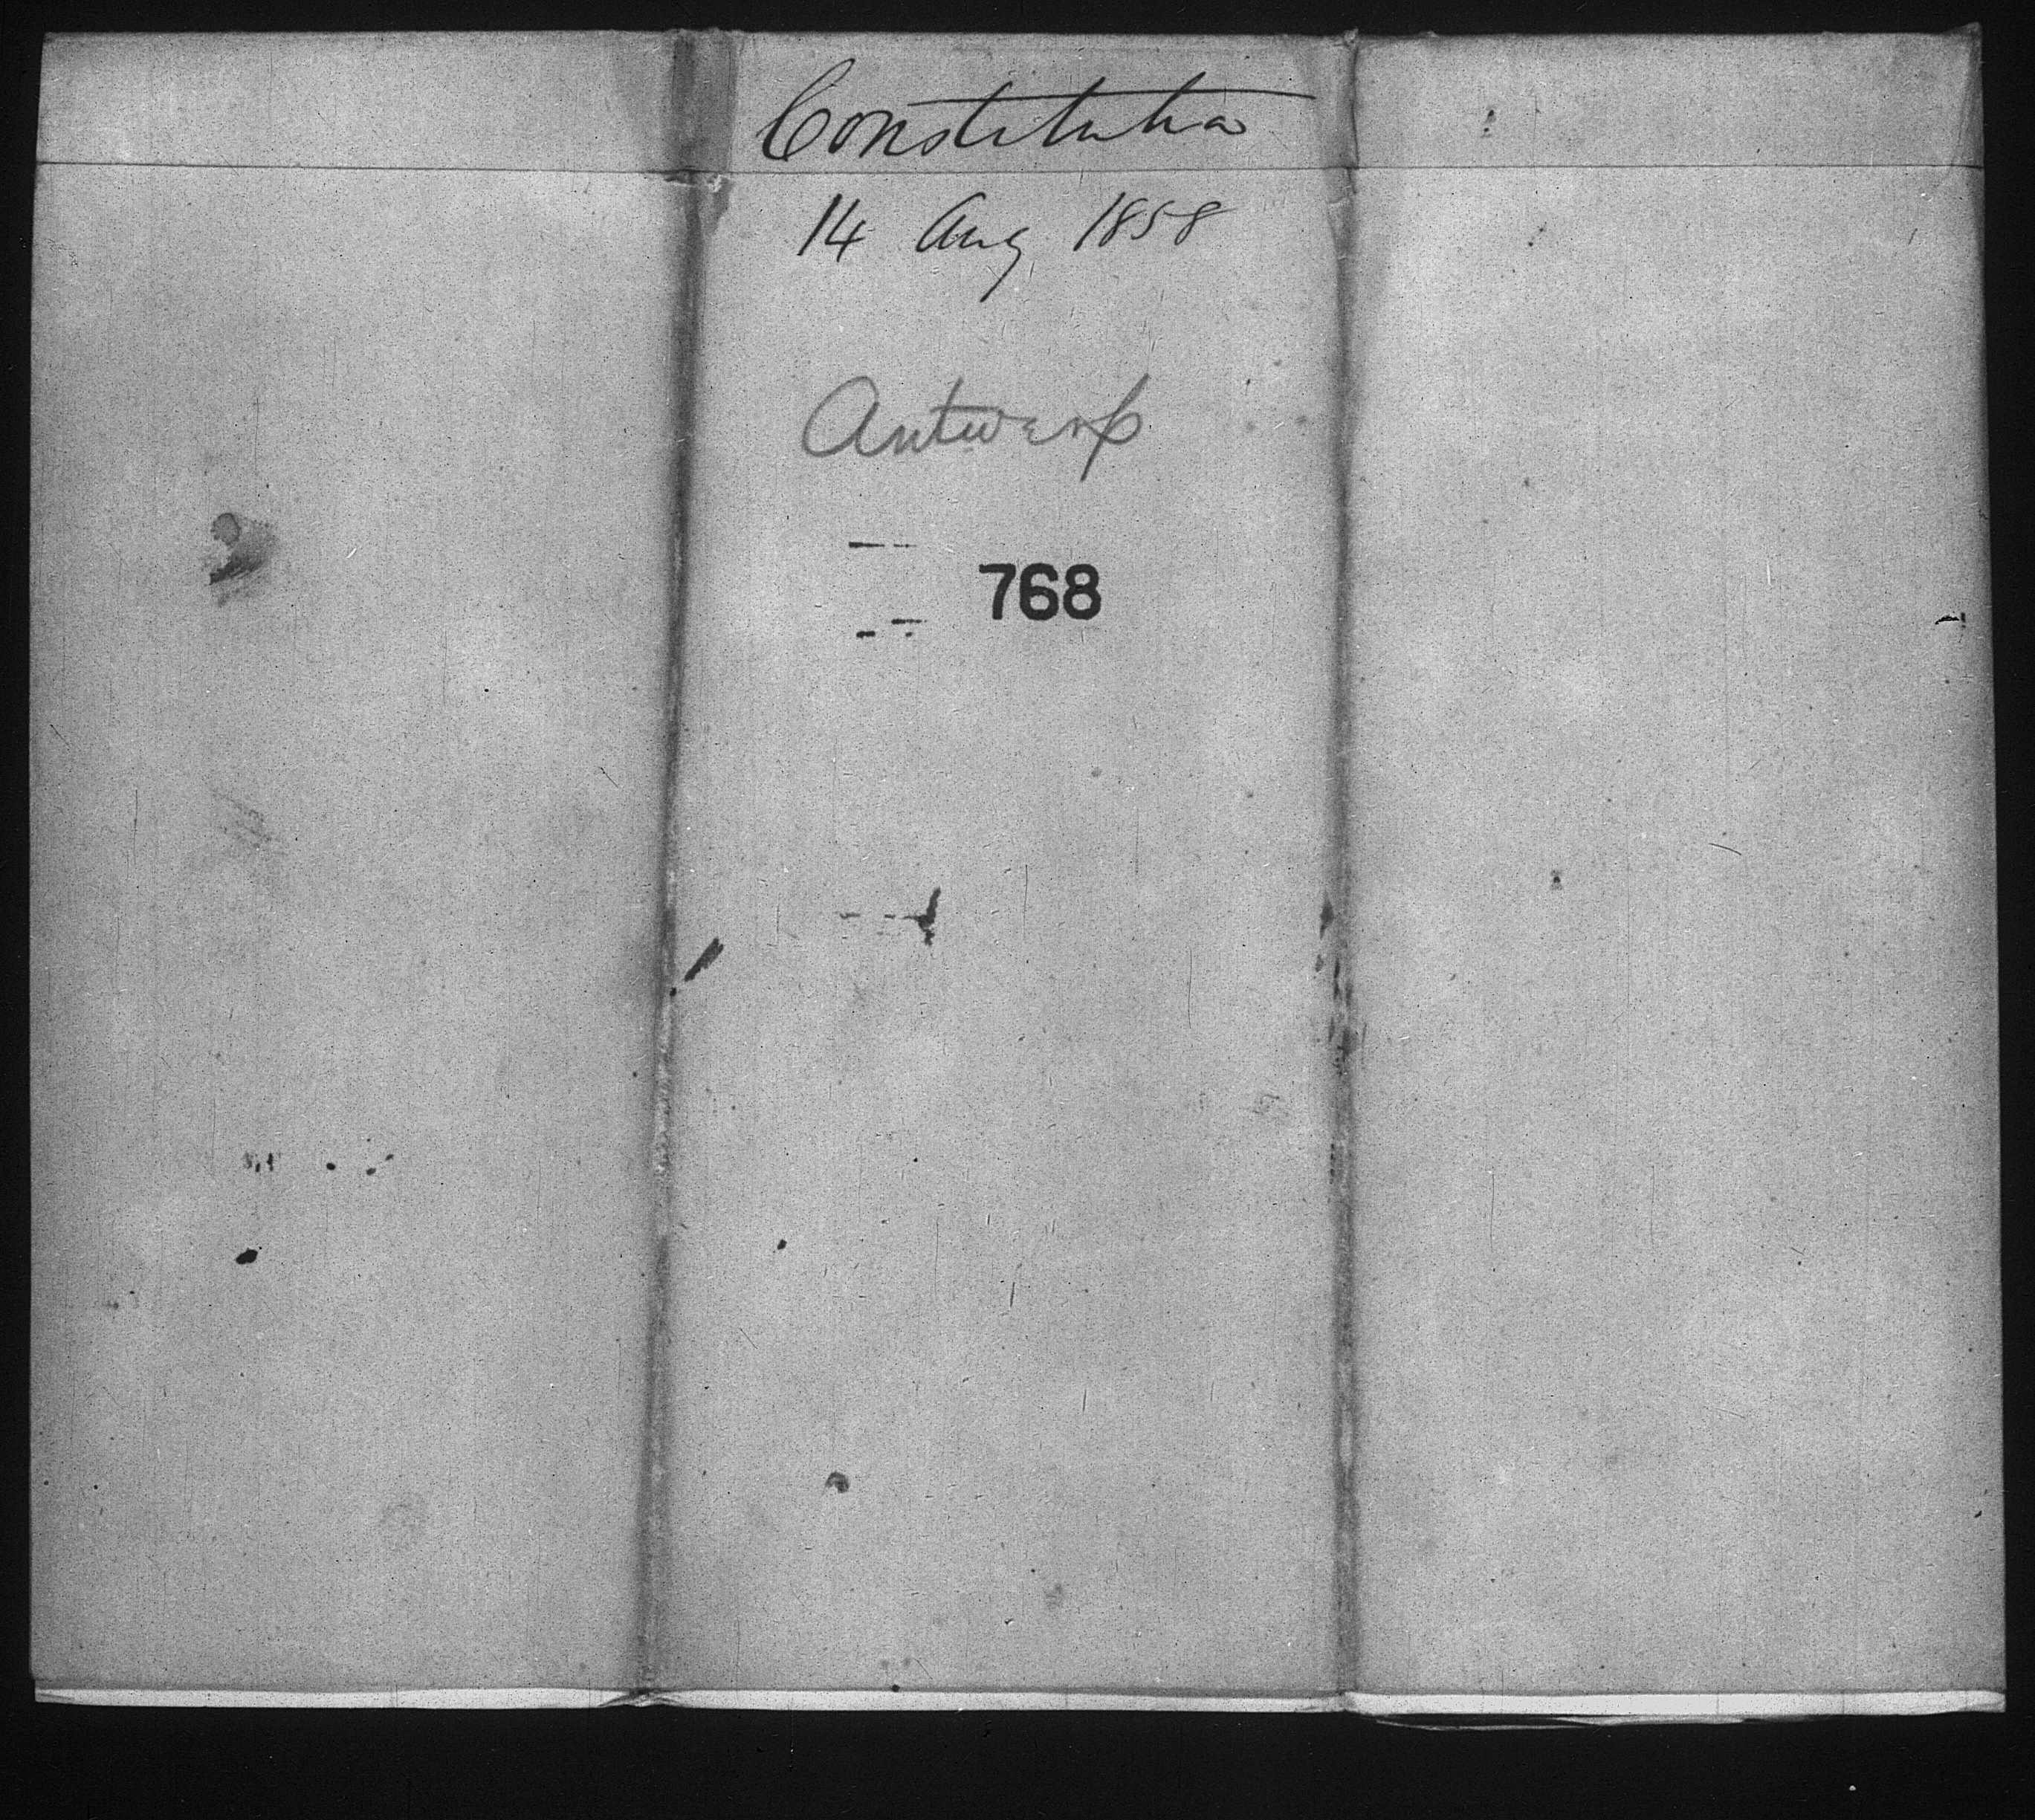 Constitution
14 Aug 1858
Antwerp
768